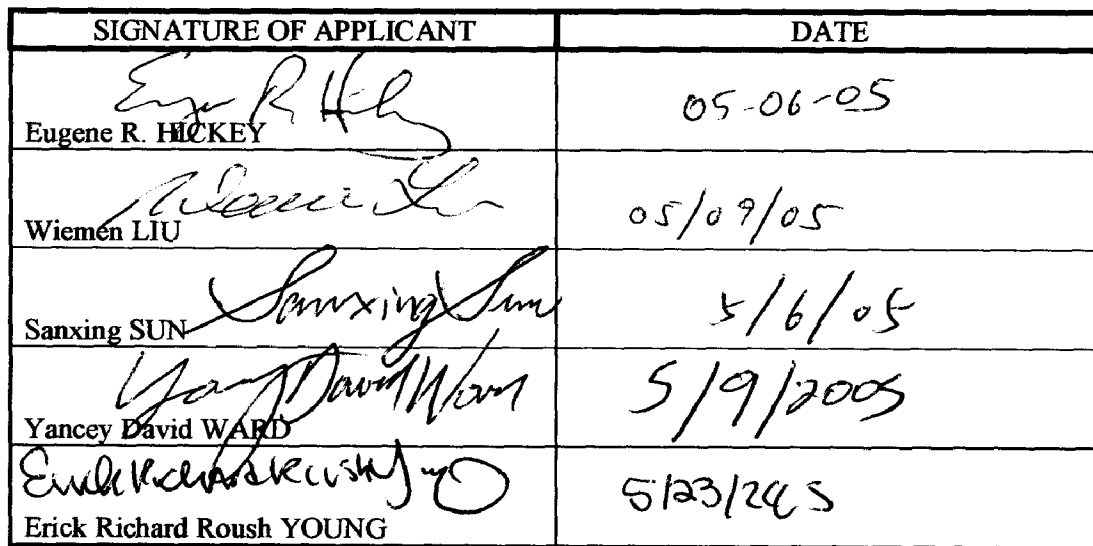 SIGNATURE OF APPLICANT DATE
Eugene R. HICKEY 05-06-05
Wiemen LIU 05/09/05
Sanxing Sun
Sanxing SUN 5/6/05
Yancey David Ward
Yancey David WARD 5/9/2005
Erick Richard Roush Young 5/23/2005
Erick Richard Roush YOUNG